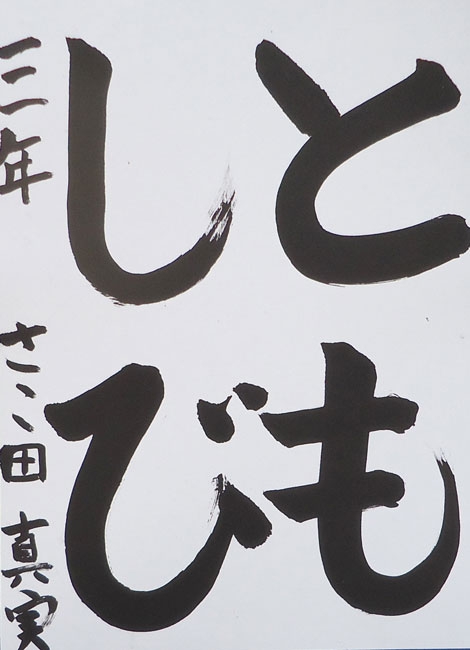 とも
しび
三年 さゝ田 真実